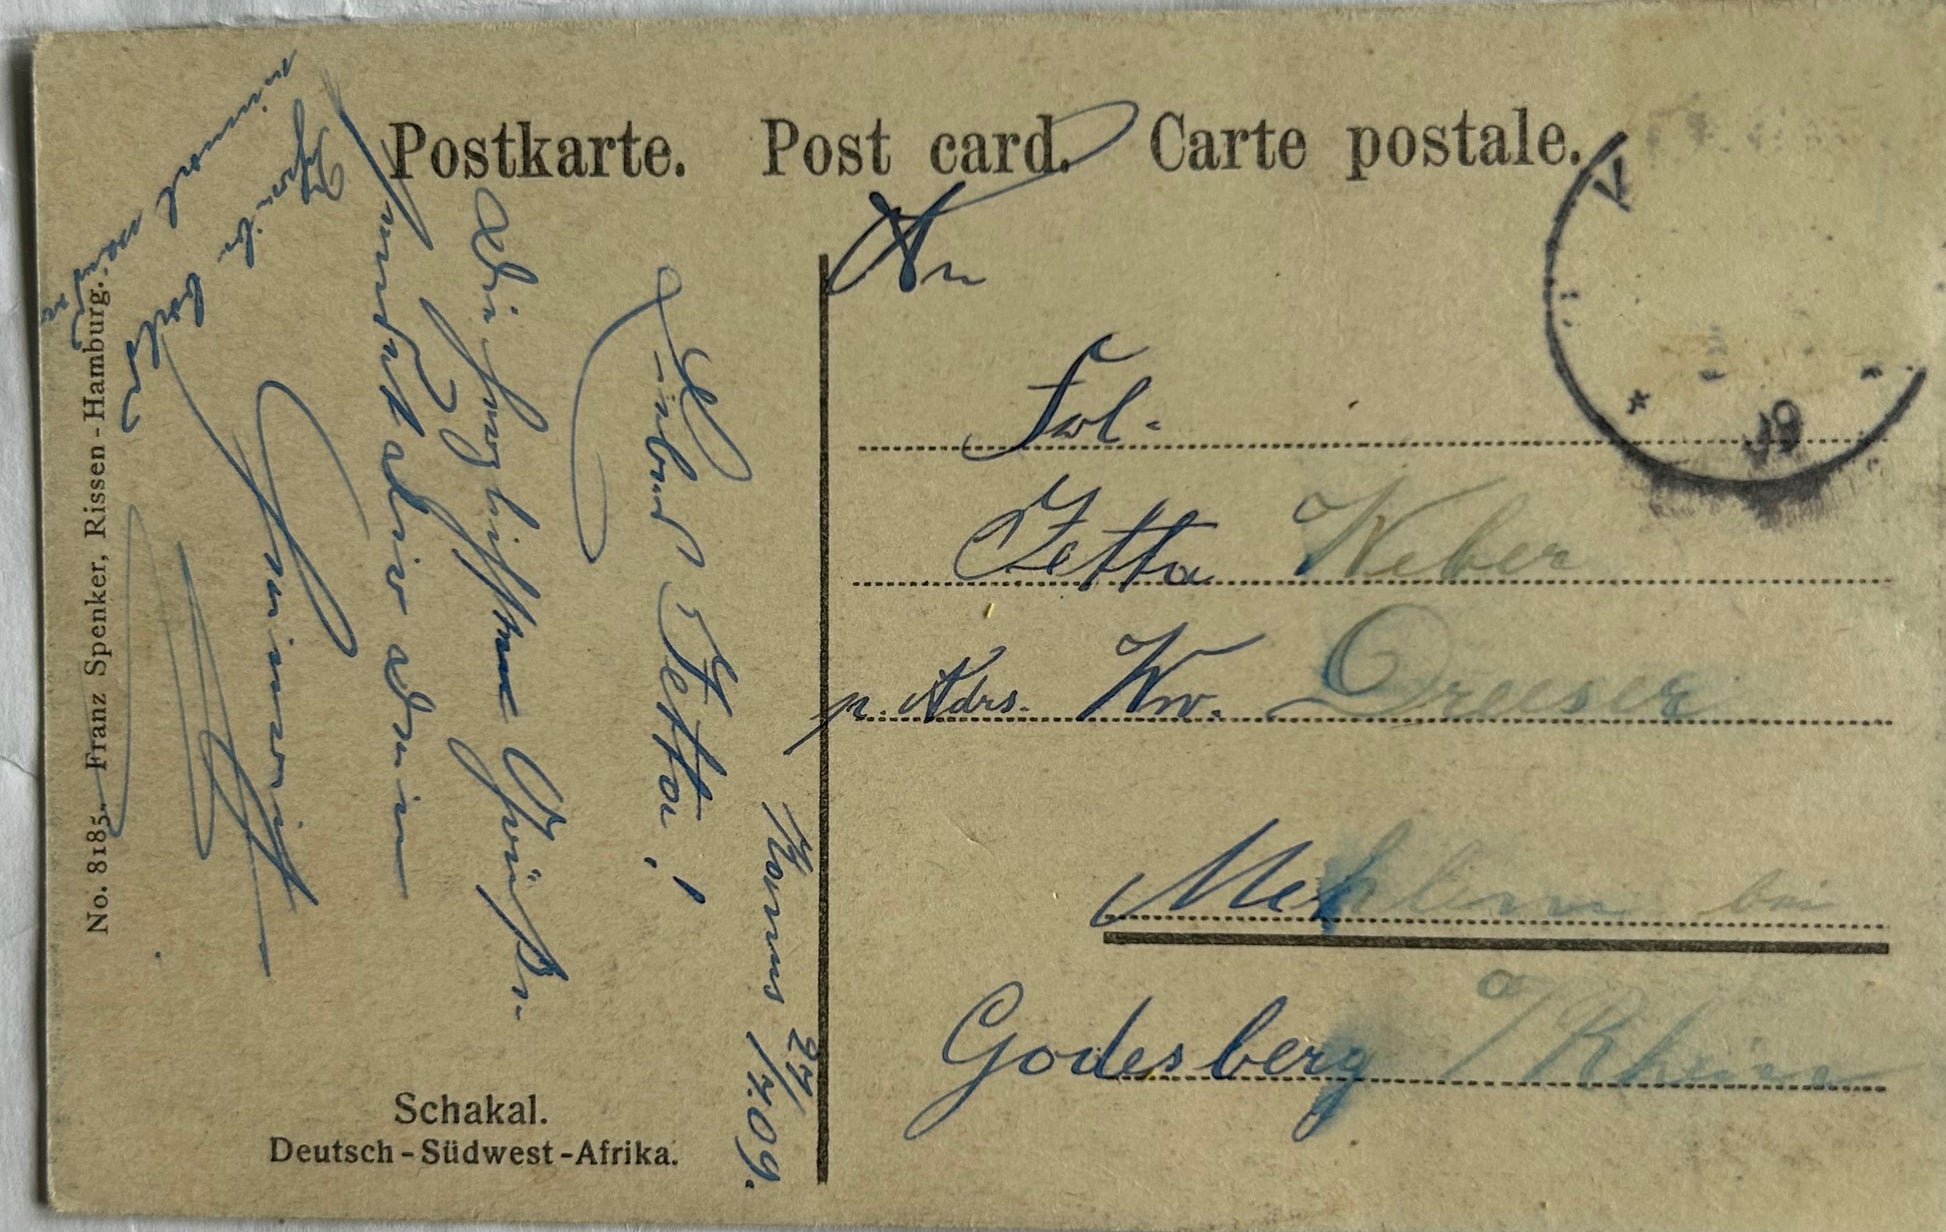 Postkarte. Post card. Carte postale.
An
Frl.
Jetta Weber
p. Adrs. Ww. Dreeser
Mehlem bei
Godesberg a/Rhein
27/7.09.
Liebes Jetta!
Die herzlichsten Grüße
sendet dir dein
Heinrich
Schreibe bald
einmal wieder
No. 8185. Franz Spenker, Rissen-Hamburg.
Schakal.
Deutsch-Südwest-Afrika.
V
* 09